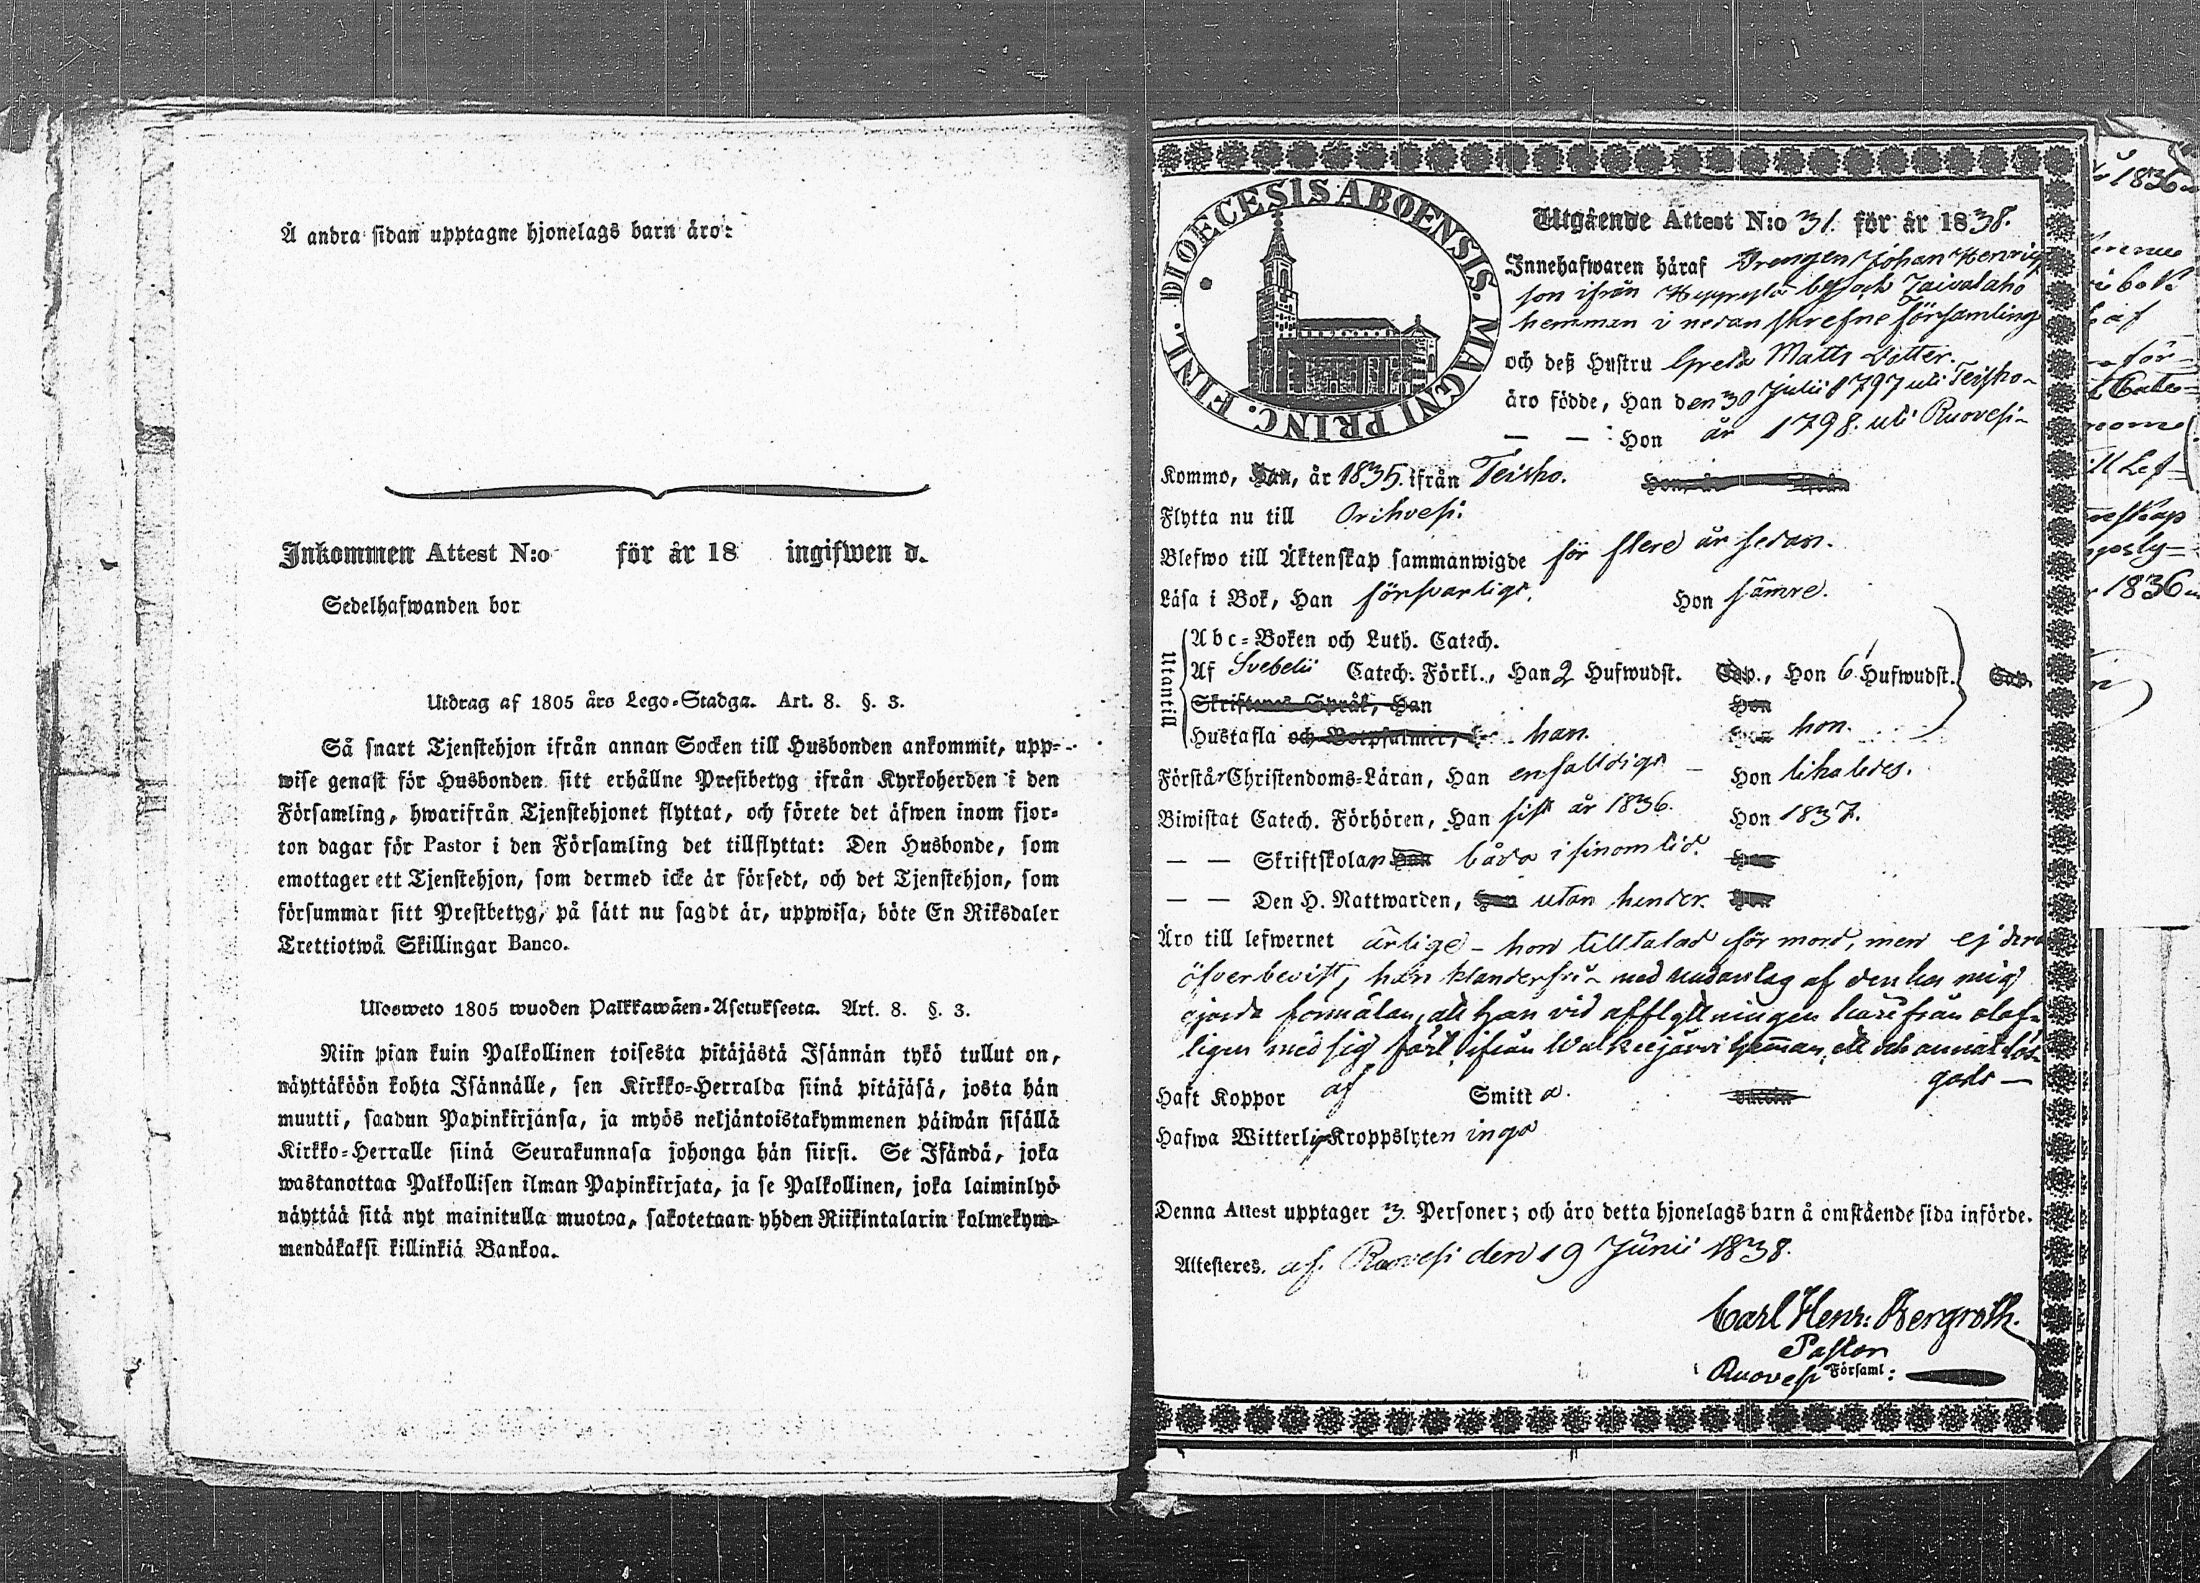 Å andra sidan upptagne hjonelags barn äro:
Inkommen Attest N:o för år 18 ingifwen d.
Sedelhafwanden bor
Utdrag af 1805 års Lego-Stadga. Art. 8. §. 3.
Så snart Tjenstehjon ifrån annan Socken till Husbonden ankommit, upp-
wise genast för Husbonden sitt erhållne Prestbetyg ifrån Kyrkoherden i den
Församling, hwarifrån Tjenstehjonet flyttat, och förete det äfwen inom fjor-
ton dagar för Pastor i den Församling det tillflyttat: Den Husbonde, som
emottager ett Tjenstehjon, som dermed icke är försedt, och det Tjenstehjon, som
försummar sitt Prestbetyg, på sätt nu sagdt är, uppwisa, böte En Riksdaler
Trettiotwå Skillingar Banco.
Ulosweto 1805 wuoden Palkkawäen-Asetuksesta. Art. 8. §. 3.
Niin pian kuin Palkollinen toisesta pitäjästä Isännän tykö tullut on,
näyttäköön kohta Isännälle, sen Kirkko-Herralda siinä pitäjäsä, josta hän
muutti, saadun Papinkirjansa, ja myös neljäntoistakymmenen päiwän sisällä
Kirkko-Herralle siinä Seurakunnasa johonga hän siirsi. Se Isändä, joka
wastanottaa Palkollisen ilman Papinkirjata, ja se Palkollinen, joka laiminlyö
näyttää sitä nyt mainitulla muotoa, sakotetaan yhden Riikintalarin kolmekym-
mendäkaksi killinkiä Bankoa.
DIOECESIS ABOENSIS. MAGNI PRINC. FINL.
Utgående Attest N:o 31. för år 1838.
Innehafwaren häraf Drengen Johan Henrics
son ifrån by och Taivalaho
hemman i nedanskrefne församling
och deß Hustru Greta Matts dotter.
äro födde, Han den 30 Julii 1797 uti Teisko
— — Hon år 1798. uti Ruovesi
Kommo, Han, år 1835. ifrån Teisko. Hon, år ifrån
Flytta nu till Orihvesi.
Blefwo till Äktenskap sammanwigde för flere år sedan.
Läsa i Bok, Han försvarligt. Hon sämre.
Utantill
Abc-Boken och Luth. Catech.
Af Svebelii Catech. Förkl., Han 2 Hufwudst. Cap., Hon 6 Hufwudst. Cap.
Skriftenes Språk, Han Hon
Hustafla och Botpsalmer, han. Hon hon.
Förstår Christendoms-Läran, Han enfalldigt Hon likaledes.
Biwistat Catech. Förhören, Han sist år 1836. Hon 1837.
— — Skriftskolan Han båda i sinom tid. Hon
— — Den H. Nattwarden, Han utan hinder. Hon
Äro till lefwernet ärlige - hon tilltalad för mord, men ej dertill
öfverbevist, han klanderfri - med undantag af den hos mig
gjorda formälan, att han vid afflyttningen härifrån olof-
ligen med sig fört ifrån Walkeejärvi hemman, ett och annat lös
gods —
Haft Koppor af Smitt a. vaccin
Hafwa Witterlig Kroppslyten inga
Denna Attest upptager 3. Personer; och äro detta hjonelags barn å omstående sida införde.
Attesteres. af. Ruovesi den 19 Junii 1838.
Carl Henr: Bergroth.
Pastor
i Ruovesi Församl:
1836
för
1836